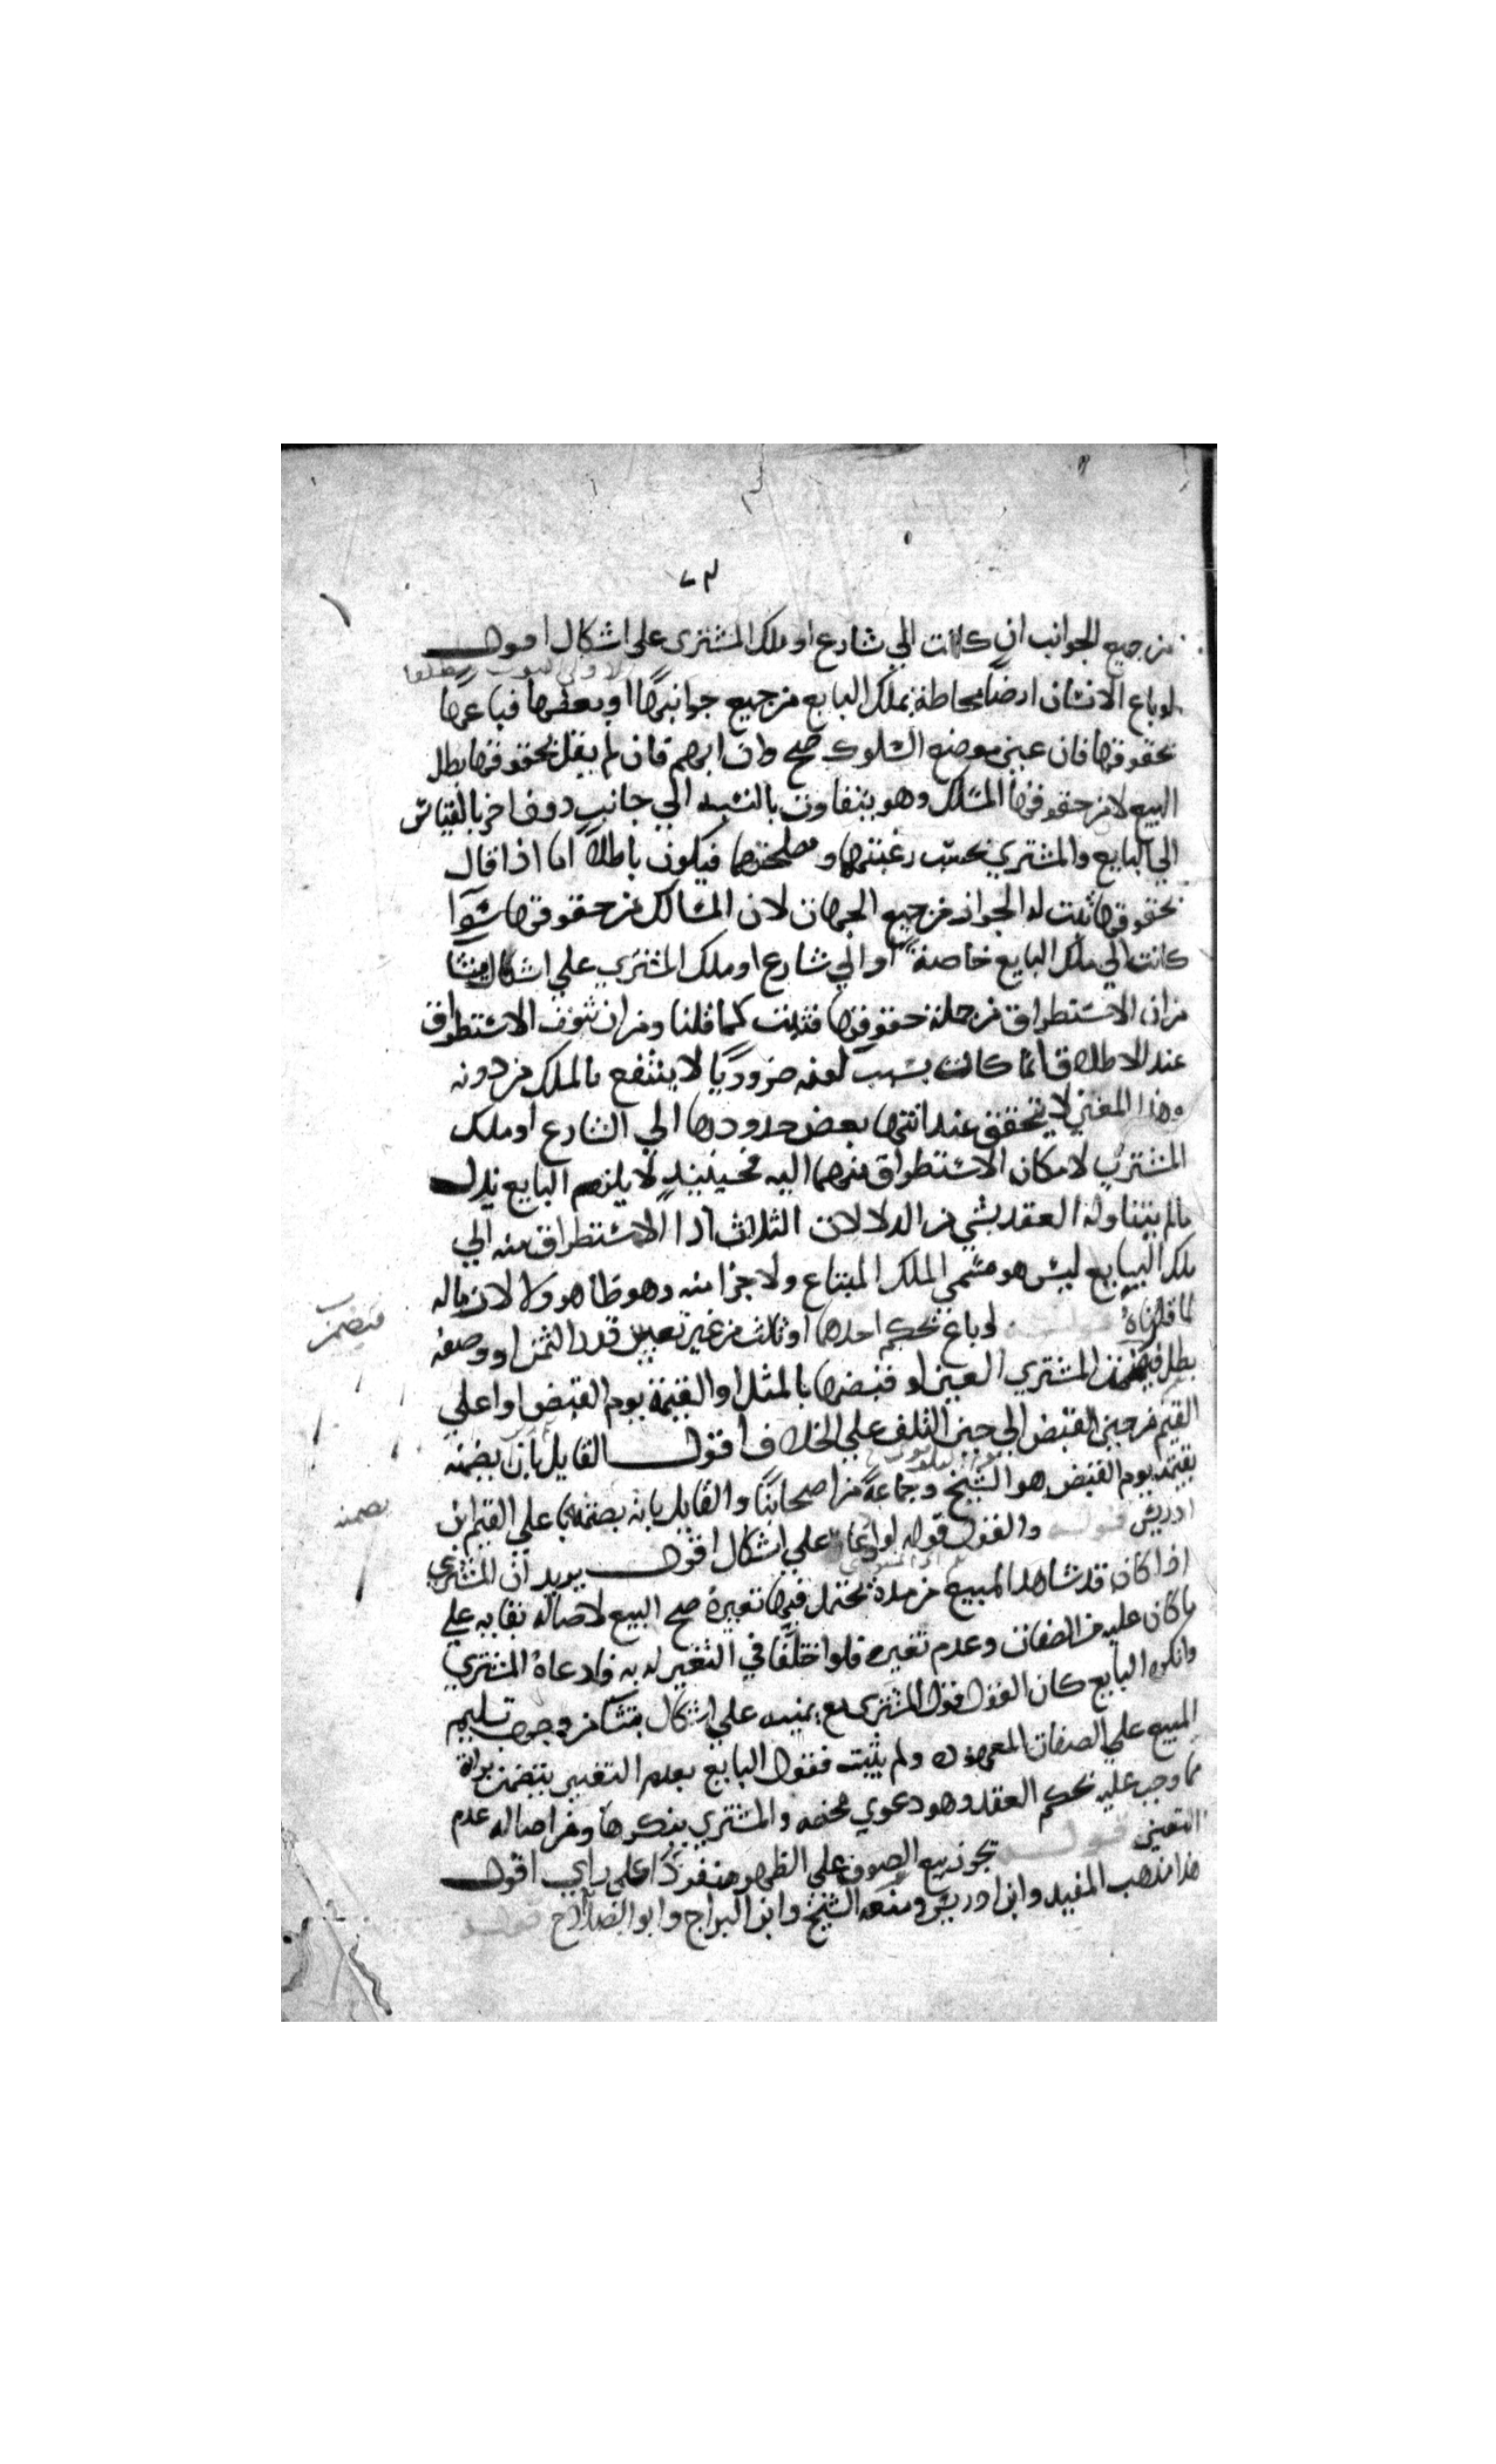 من جميع الجوانب ان كانت الي شارع او ملك المشتري علي اشكال اقول
لو باع الانسان ارضا محاطة بملك البايع من جميع جوانبها او بعضها فباعها
بحقوقها فان عين موضع السلوك صح وان ابهم فان لم يقل بحقوقها بطل
البيع لان من حقوقها المسلك وهو يتفاوت بالنسبة الي جانب دون اخر بالقياس
الي البايع والمشتري بحسب رغبتهما ومصلحتهما فيكون باطلا اما اذا قال
بحقوقها ثبت له الجواز من جميع الجهات لان المسالك من حقوقها سوا
كانت الي ملك البايع خاصة او الي شارع او ملك المشتري علي اشكال ينشا
من ان الاستطراق من جملة حقوقها فثبت كما قلنا ومن ان ثبوت الاستطراق
عند الاطلاق انما كانت بسبب كونه ضروريا لا ينتفع بالملك من دونه
وهذا المعني لا يتحقق عند انتها بعض حدودها الي الشارع او ملك
المشتري لامكان الاستطراق منهما اليه فحينيذ لا يلزم البايع بذل
مالم يتناوله العقد بشي من الدلالات الثلاث اذ الاستطراق منه الي
ملك البايع ليس هو مسمي الملك المبتاع ولا جزا منه وهو ظاهر ولا لازما له
لما قلناه قوله لو باع بحكم احدهما او ثالث من غير تعيين قدر الثمن او وصفه
بطل فيضمن المشتري العين لو قبضها بالمثل او القيمة يوم القبض او اعلي
القيم من حين القبض الي حين التلف علي الخلاف اقول القايل بان يضمنه
بقيمته يوم القبض هو الشيخ وجماعة من اصحابنا والقايل بانه يضمنها باعلي القيم ابن
ادريس قوله والقول قوله لو ادعاه علي اشكال اقول يريد ان المشتري
اذا كان قد شاهد المبيع من مدة يحتمل فيها تغيره صح البيع لاصالة بقايه علي
ما كان عليه من الصفات وعدم تغيره فلو اختلفا في التغير له به فادعاه المشتري
وانكره البايع كان القول قول المشتري مع يمينه علي اشكال ينشا من وجوب تسليم
المبيع علي الصفات المعهودة ولم يثبت فقول البايع بعدم التغيير يتضمن براة
مما وجب عليه بحكم العقد وهو دعوي محضه والمشتري ينكرها ومن اصالة عدم
التغيير قوله يجوز بيع الصوف علي الظهر منفردا علي راي اقول
هذا مذهب المفيد وابن ادريس ومنعه الشيخ وابن البراج وابو الصلاح قوله
فيضمن
يضمنه